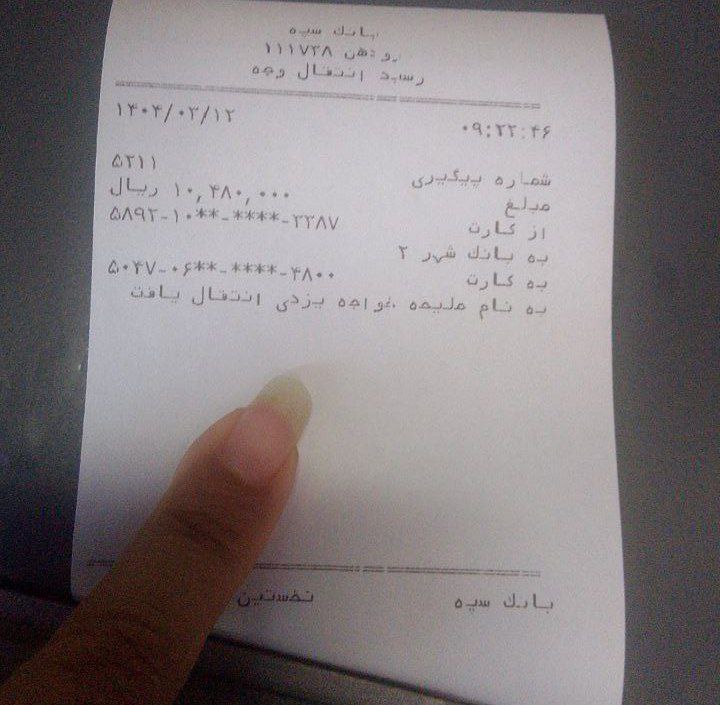 بانك سپه
رودهن ۱۱۱۷۳۸
رسيد انتقال وجه
۱۴۰۴/۰۳/۱۲ ۰۹:۲۲:۴۶
شماره پيگيري ۵۲۱۱
مبلغ ۱۰,۴۸۰,۰۰۰ ريال
از كارت ۵۸۹۲-۱۰**-****-۲۳۸۷
به بانك شهر ۲
به كارت ۵۰۴۷-۰۶**-****-۴۸۰۰
به نام مليحه خواجه يزدي انتقال يافت
بانك سپه نخستين